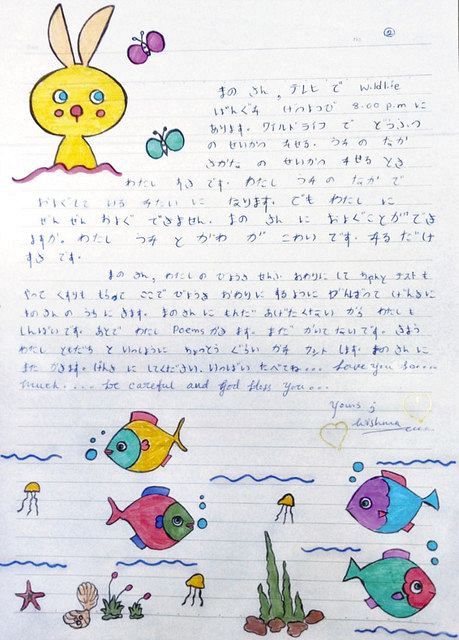 ②
まの さん, テレビ で Wildlife
ばんぐみ げつようび 8.00 p.m に
あります. ワイルドライフ で どうぶつ
の せいかつ みせる. うみ の なか
さかな の せいかつ みせる とき
わたし すき です. わたし うみ の なか で
およぐして いる みたい に なります. でも わたし に
ぜん ぜん およぐ できません. まの さん に およぐことができ
ますか. わたし うみ と かわ が こわい です. みる だけ
すき です.
まの さん, わたし の びょうき ぜんぶ おわり に して
やって くすり も もらって ここで びょうき おわり に するように がんばって げんき に
まの さん の うち に きます. まの さん に もんだい あげたくない から わたし も
しんぱい です. あとで わたし Poems かき ます. まだ かいて ないです. きょう
わたし ともだち と いっしょうに ちょっとう ぐらい します. まの さん に
また かきます. げんき に してください. いっぱい たべてね... Love you so...
much.... be careful and God bless you...
Yours ;